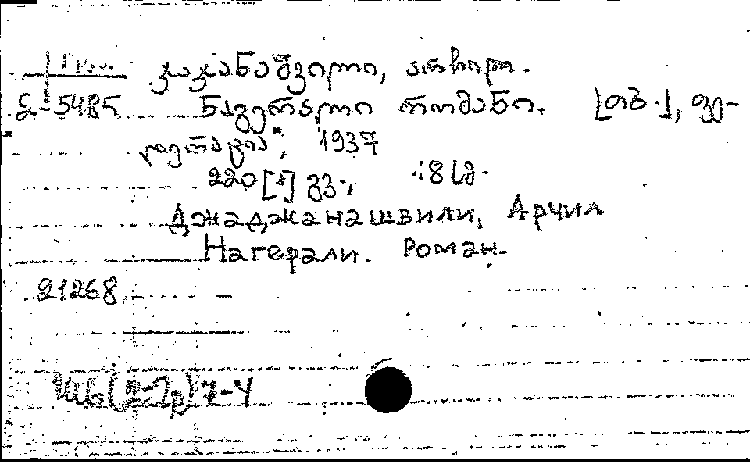 ჯაჯანაშვილი, არჩილ.
ნაგერალი რომანი. [თბ.], ფე-
დერაცია", 1937
220 [1] გვ., 18 სმ.
Джаджанашвили, Арчил
Нагерали. Роман.
21268